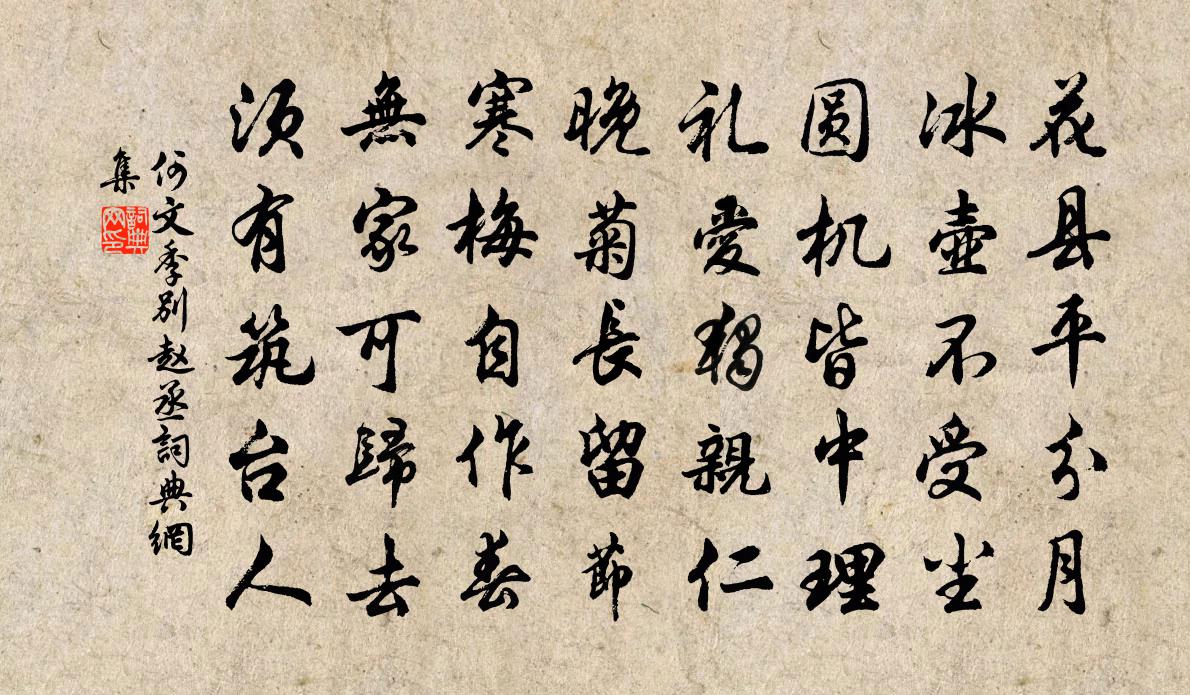 花县平分月
冰壶不受尘
圆机皆中理
礼愛獨親仁
晚菊長留節
寒梅自作春
無家可歸去
须有筑台人
何文季别赵丞詞典網
集
詞典
网印